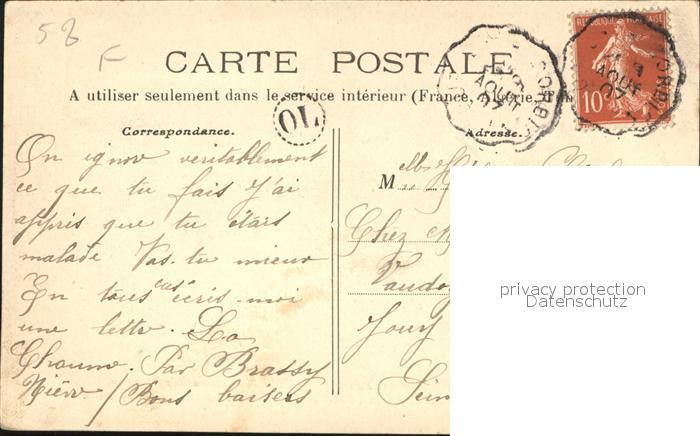 58
F
CARTE POSTALE
A utiliser seulement dans le service intérieur (France, Algérie,
OL
REPUBLIQUE FRANÇAISE
10
AOUT
07
CORBI
AOUT
07
CORBI
Correspondance.
Adresse.
On ignor veritablement
ce que tu fais J'ai
appris que tu étais
malade Vas-tu mieux
En tous cas écris-moi
une lettre. La
Chaume. Par Brassy
Nièvre / Bons baisers
M
Chez
Vaudoy
Jouy
Sein
privacy protection
Datenschutz